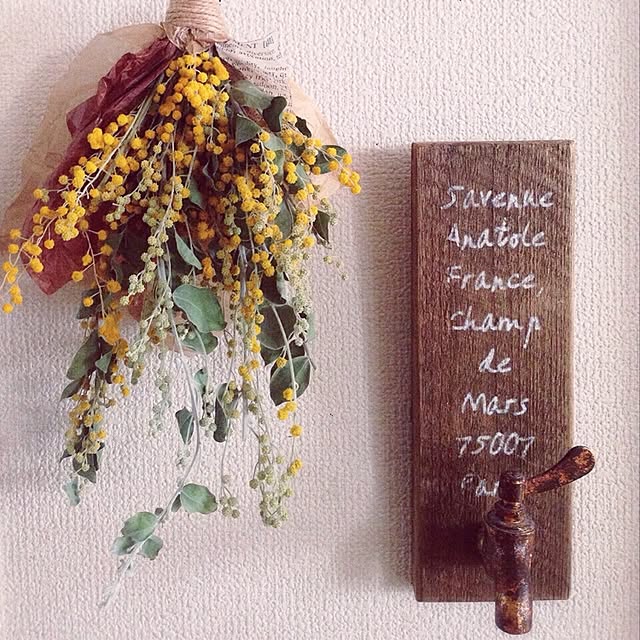 5 avenue
Anatole
France,
Champ
de
Mars
75007